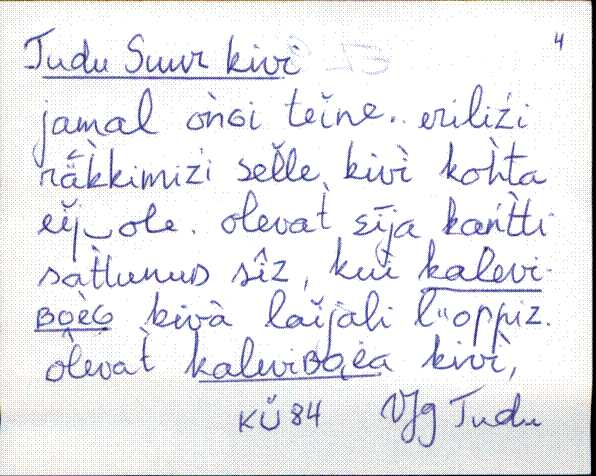 Tudu Suur kivi 4
jamal oǹGi teǐne.. eriliźi
räk̀kimiźi selle kivì koh̀ta
eij‿ole. olevat̀ sīja kańt̀ti
sat̀tunuD sîz, kui kalevi-
BOèG kivà laǐjali l"oppiz.
olevat̀ kaleviBOėa kivì,
KÜ 84 VJg Tudu